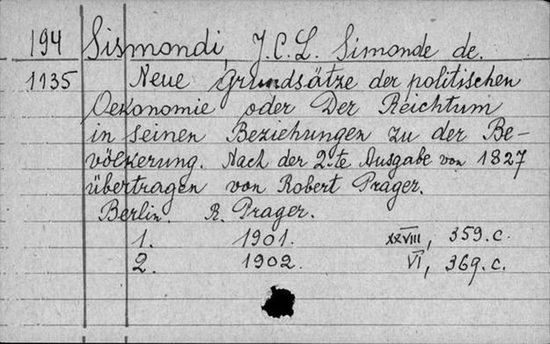 194 Sismondi J.C.L. Simonde de.
1135 Neue Grundsätze der politischen
Oekonomie oder Der Reichtum
in seinen Beziehungen zu der Be-
völkerung. Nach der 2-te Ausgabe von 1827
übertragen von Robert Prager.
Berlin. R. Prager.
1. 1901. XXVIII, 359.c.
2. 1902. VI, 369.c.